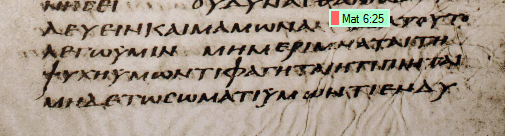 ΟΥΔΥΝΑ
ΛΕΥΕΙΝΚΑΙΜΑΜΩΝΑ
Mat 6:25
ΛΕΓΩΥΜΙΝ ΜΗΜΕΡΙΜΝΑΤΑΙΤΗ
ΨΥΧΗΥΜΩΝΤΙΦΑΓΗΤΑΙΗΤΙΠΙΗΤΑΙ
ΜΗΔΕΤΩϹΩΜΑΤΙΥΜΩΝΤΙΕΝΔΥ